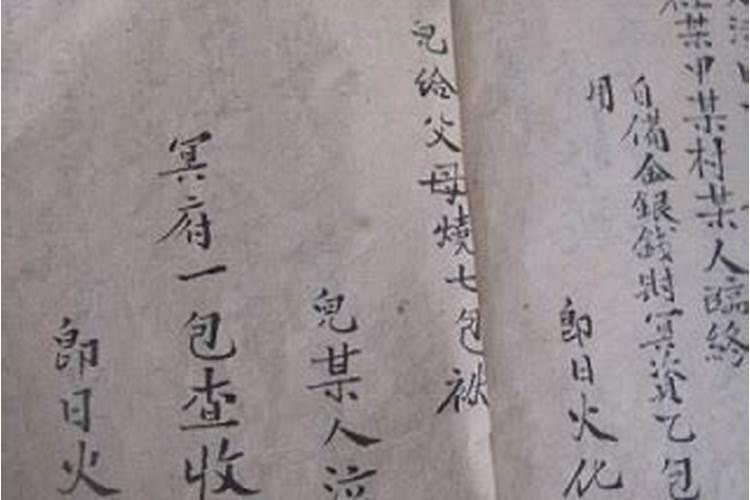 某甲某村某人臨終
自備金銀錢財冥資乙包
用
即日火化
兒給父母燒七包袱
兒某人泣
冥府一包查收
即日火